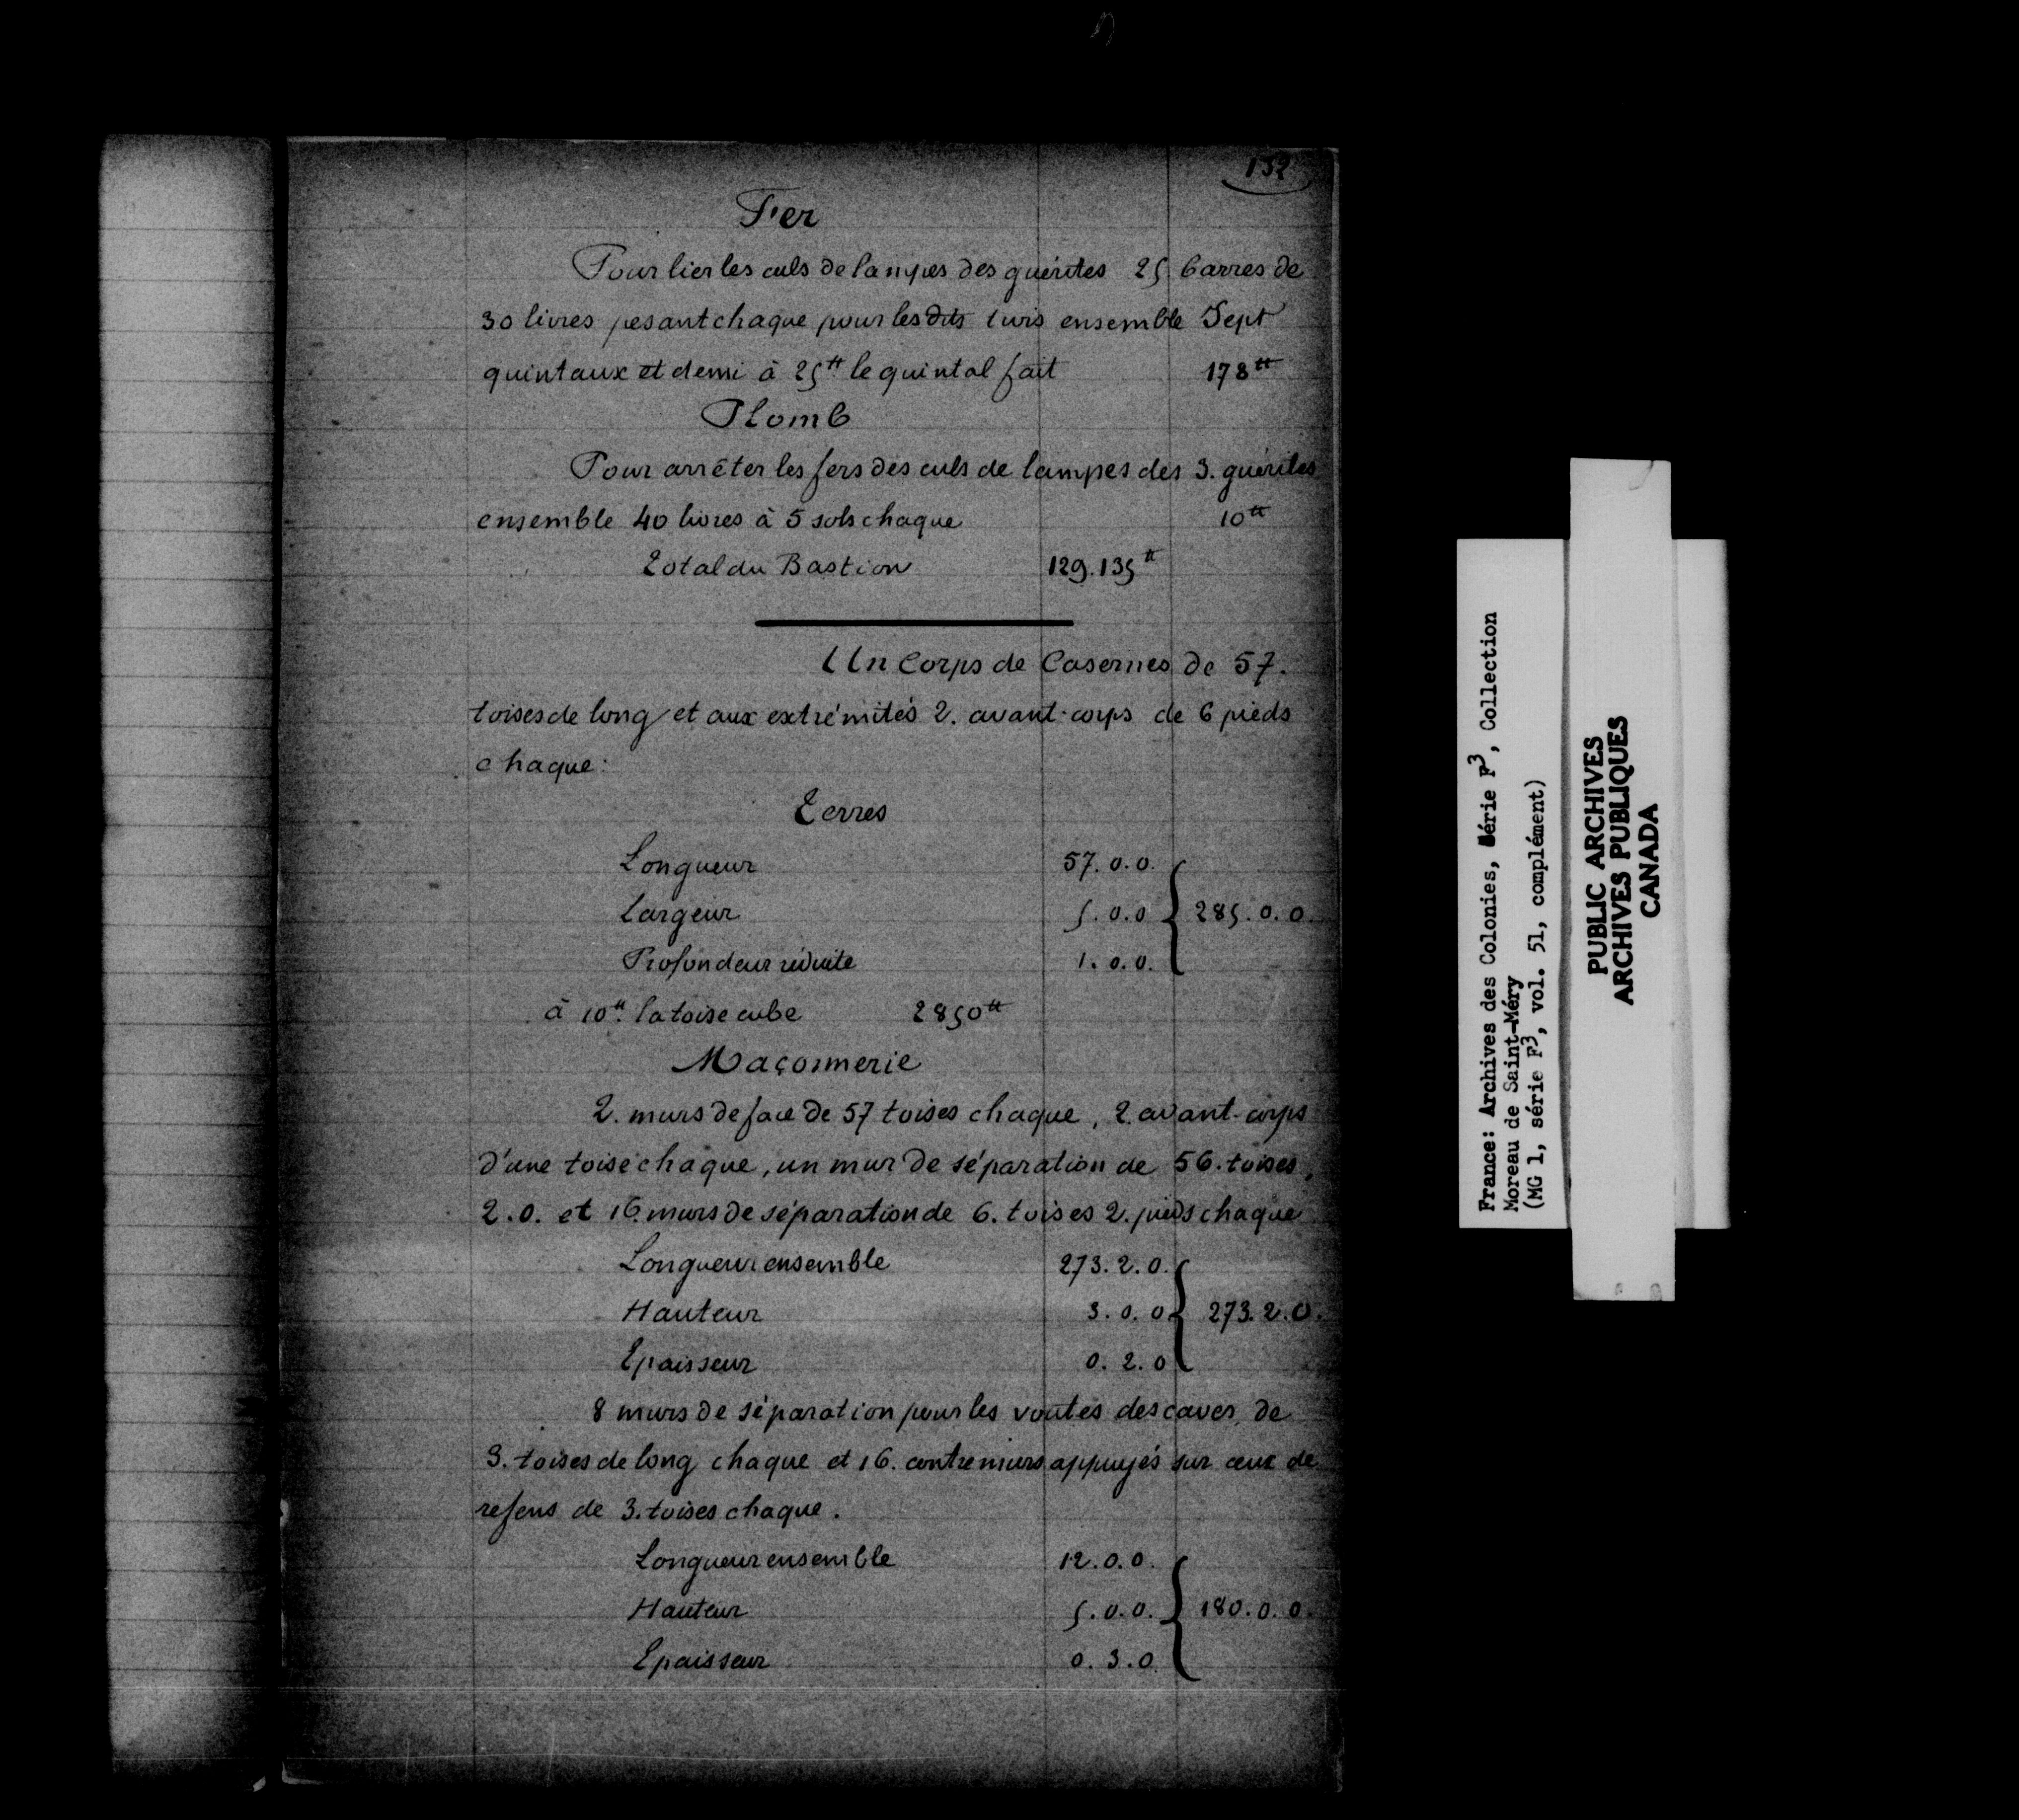 132
Fer
Pour lier les culs de lampes des guérites 25 barres de
30 livres pesant chaque pour les dits trois ensemble Sept
quintaux et demi à 25tt le quintal fait 178tt
Plomb
Pour arrêter les fers des culs de lampes des 3. guérites
ensemble 40 livres à 5 sols chaque 10tt
Total du Bastion 129.135tt
Un Corps de Casernes de 57.
toises de long et aux extrémités 2. avant-corps de 6 pieds
chaque:
Terres
Longueur 57.0.0.
Largeur 5.0.0 285.0.0.
Profondeur réduite 1.0.0.
à 10tt. la toise cube 2850tt
Maçonnerie
2. murs de face de 57 toises chaque, 2. avant-corps
d'une toise chaque, un mur de séparation de 56. toises,
2.0. et 16. murs de séparation de 6. toises 2. pieds chaque
Longueur ensemble 273.2.0.
Hauteur 3.0.0 273.2.0.
Epaisseur 0.2.0
8 murs de séparation pour les voutes des caves, de
3. toises de long chaque et 16. contremurs appuyés sur ceux de
refens de 3. toises chaque.
Longueur ensemble 12.0.0.
Hauteur 5.0.0. 180.0.0.
Epaisseur 0.3.0.
France: Archives des Colonies, Série F3, Collection
Moreau de Saint-Méry
(MG 1, série F3, vol. 51, complément)
PUBLIC ARCHIVES
ARCHIVES PUBLIQUES
CANADA